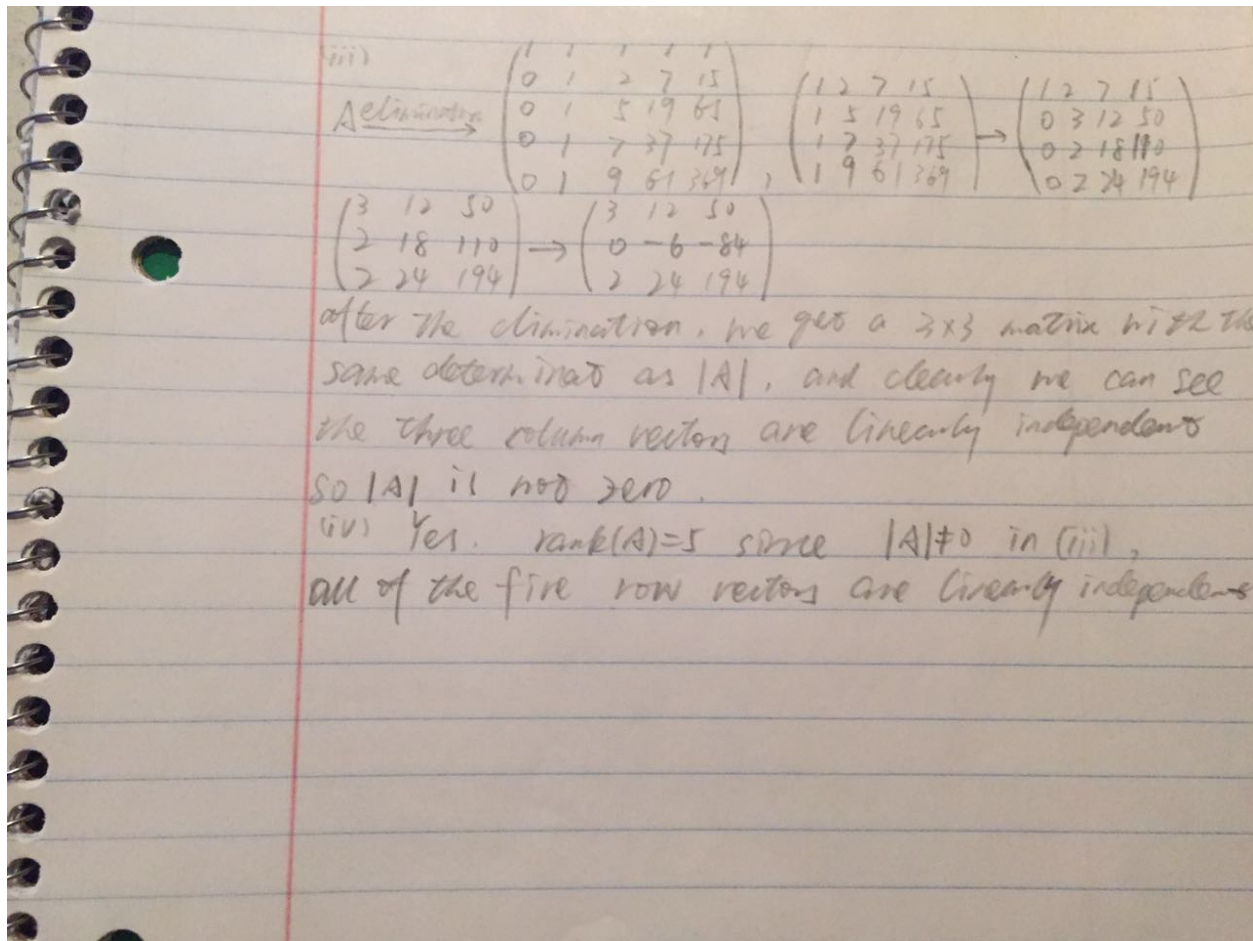 (iii)
A elimination → (1 1 1 1 1
0 1 2 7 15
0 1 5 19 65
0 1 7 37 175
0 1 9 61 369), (1 2 7 15
1 5 19 65
1 7 37 175
1 9 61 369) → (1 2 7 15
0 3 12 50
0 2 18 110
0 2 24 194)
(3 12 50
2 18 110
2 24 194) → (3 12 50
0 -6 -84
2 24 194)
after the elimination, we get a 3x3 matrix with the
same determinat as |A|, and clearly we can see
the three column vectors are linearly independent
so |A| is not zero.
(iv) Yes. rank(A)=5 since |A|≠0 in (iii),
all of the five row vectors are linearly independent